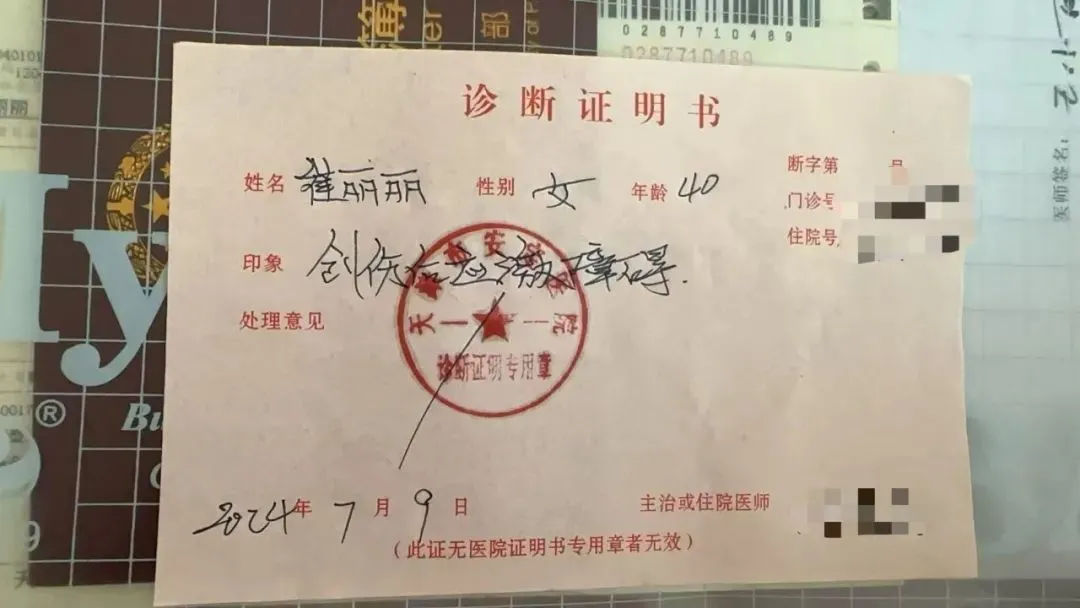 簿
部
0287710489
0287710489
医师签名:
诊断证明书
姓名 崔丽丽 性别 女 年龄 40
断字第 号
门诊号
住院号
印象 创伤后应激障碍.
处理意见
安
医
院
天一
诊断证明专用章
2024年 7月 9日
主治或住院医师
(此证无医院证明书专用章者无效)
My
Bu
®